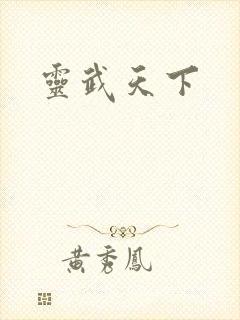 靈武天下
黃秀鳳